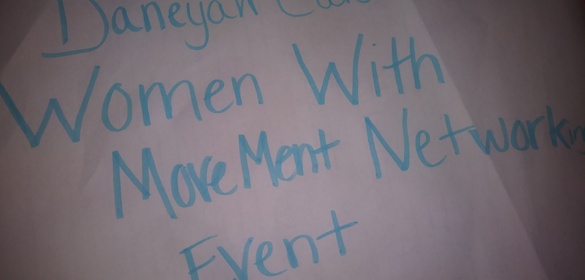 Daneyah
Women With
MoveMent Networking
Event